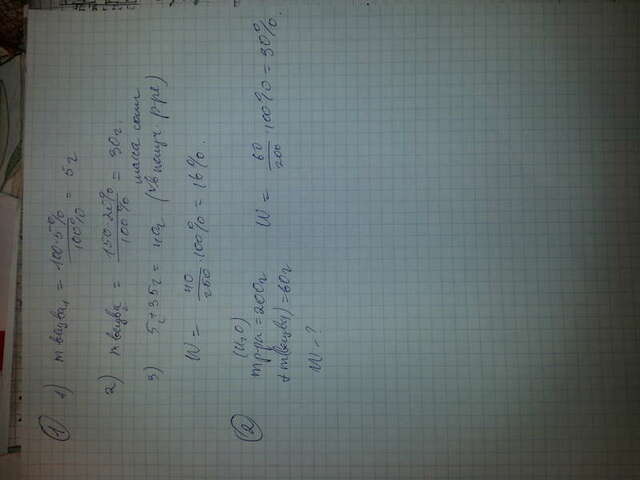 ①
1) m вещва1 = 100·5% / 100% = 5г
2) m вещва2 = 150·20% / 100% = 30г.
3) 5г+35г = 40г (масса соли
в получ. р-ре)
W = 40/250 · 100% = 16%.
②
(H2O)
m р-ра = 200г
+ m(вещва) = 60г
W - ?
W = 60/200 · 100% = 30%.